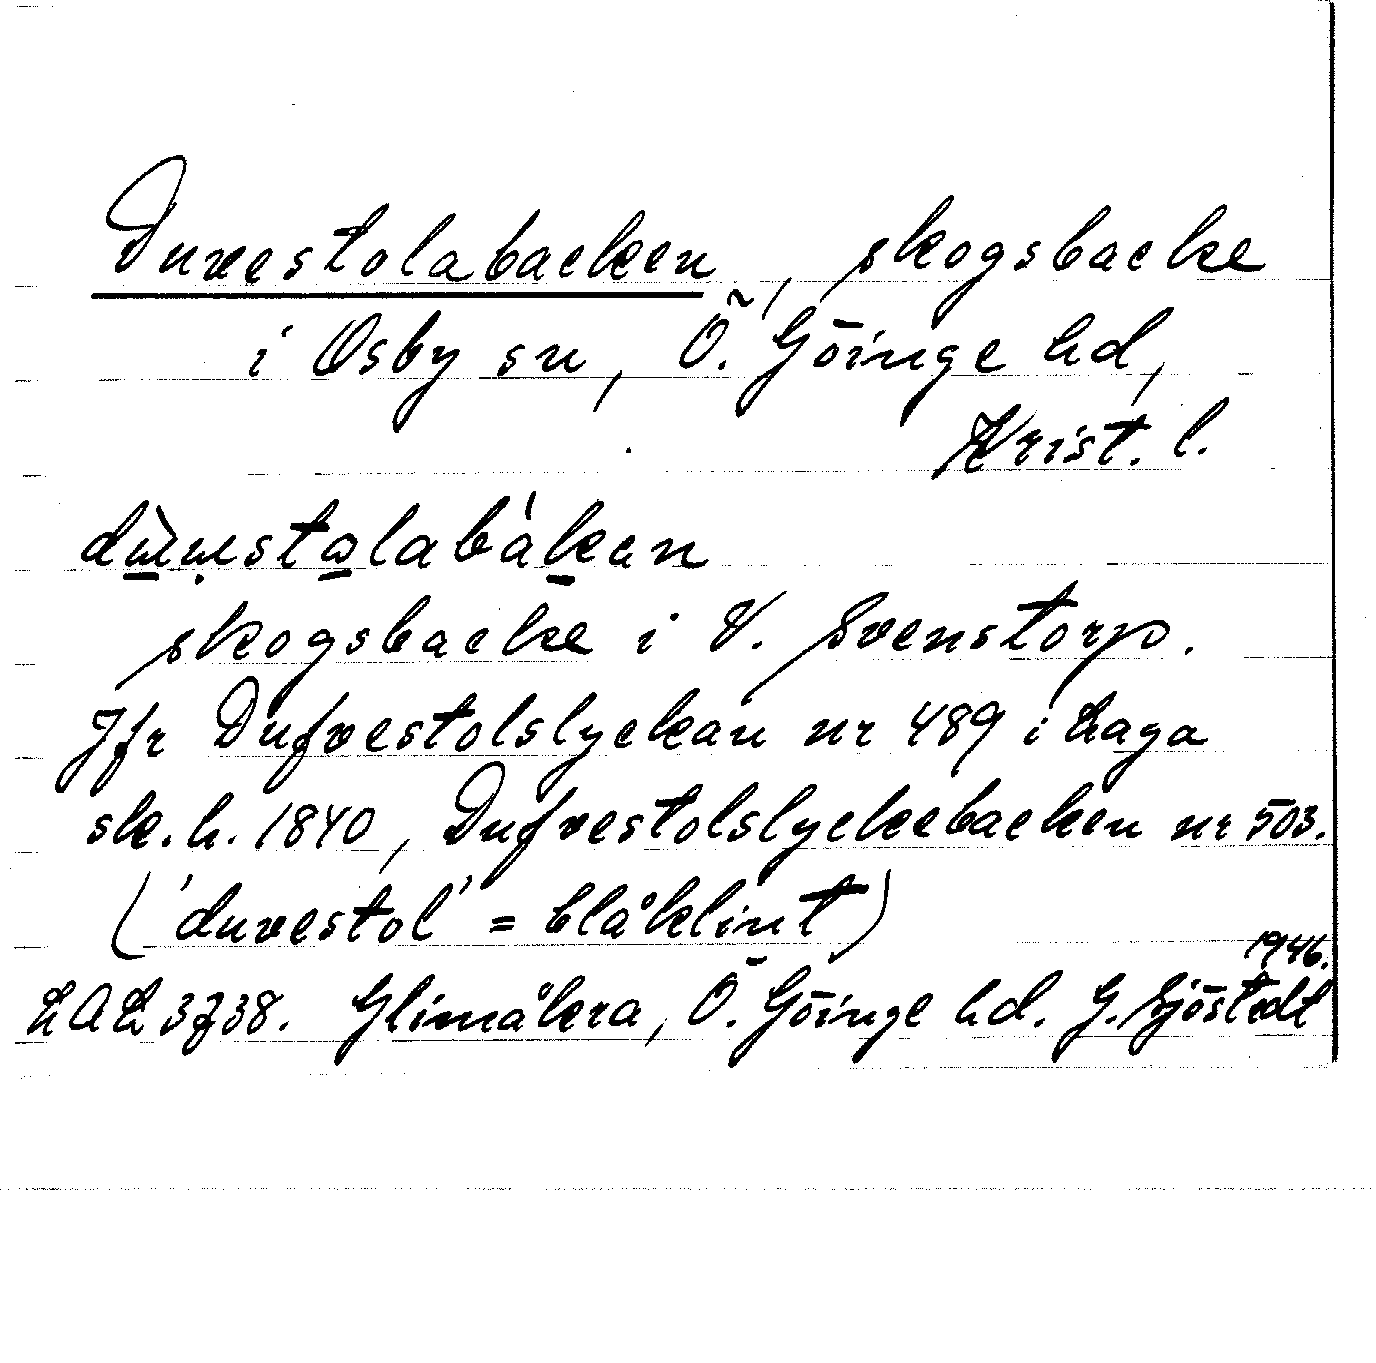 Duvestolabacken, skogsbacke
i Osby sn, Ö. Göinge hd,
Krist. l.
skogsbacke i V. Svenstorp.
Jfr Dufvestolslyckan nr 489 i Laga
sk.h. 1840, Dufvestolslyckebacken nr 503.
('duvestol' = blåklint)
1946.
LAL 3738. Glimåkra, Ö. Göinge hd. G. Sjöstedt